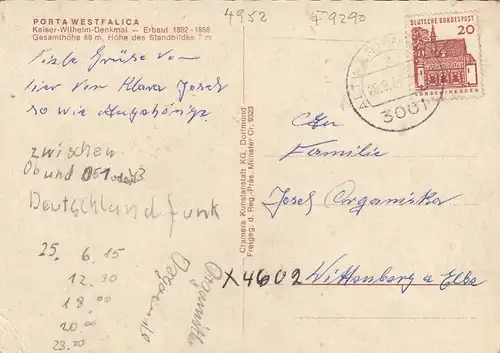 4952 F9290
PORTA WESTFALICA
Kaiser-Wilhelm-Denkmal — Erbaut 1892-1896
Gesamthöhe 88 m, Höhe des Standbildes 7 m
DEUTSCHE BUNDESPOST
20
3001
Viele Grüße von
hier von Klara Josef
so wie Angehörige
zwischen
Ob und 051 oder 53
Deutschlandfunk
25. 6.15
12.30
18.00
20.00
23.30
Cramers Kunstanstalt KG, Dortmund
Freigeg. d. Reg.-Präs. Münster Cr. 5923
An
Familie
Josef Organiska
X4602 Wittenberg a Elbe